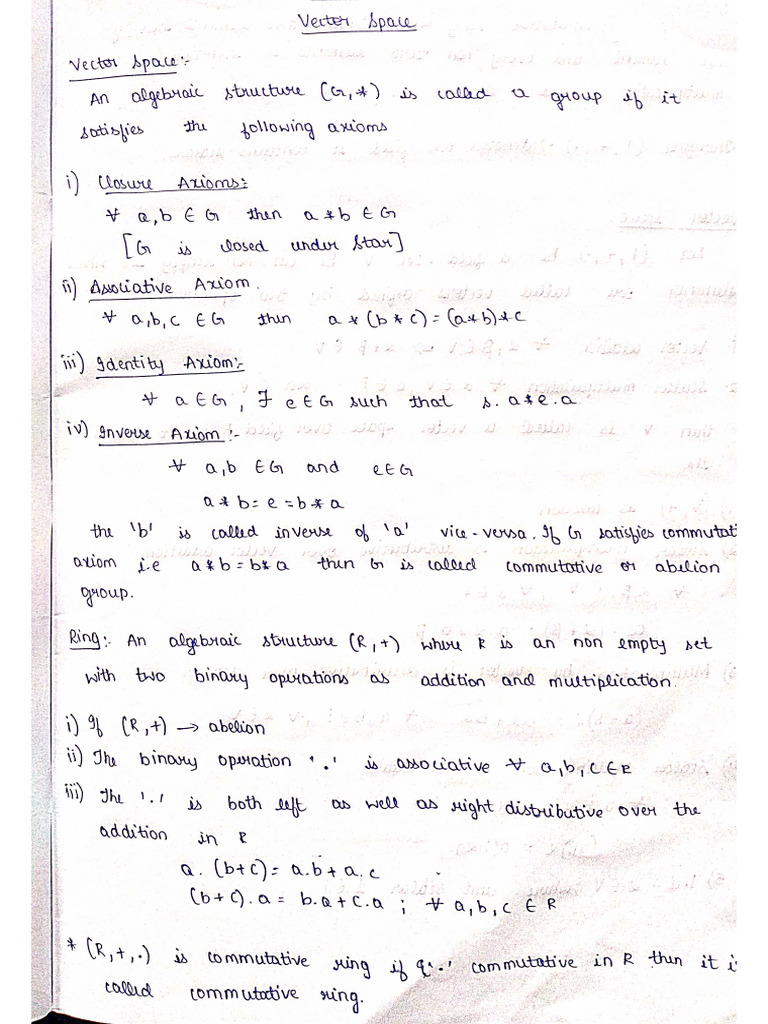 Vector Space
Vector Space:-
An algebraic structure (G,*) is called a group if it
satisfies the following axioms
i) Closure Axioms:
∀ a,b ∈ G then a*b ∈ G
[G is closed under Star]
ii) Associative Axiom.
∀ a,b,c ∈ G then a*(b*c)=(a*b)*c
iii) Identity Axiom:-
∀ a∈G, ∃ e∈G such that s.a*e.a
iv) Inverse Axiom:-
∀ a,b ∈G and e∈G
a*b=e=b*a
the 'b' is called inverse of 'a' vice-versa. If G satisfies commutati
axiom i.e a*b=b*a then G is called commutative or abelion
group.
Ring:- An algebraic structure (R,+) where R is an non empty set
with two binary operations as addition and multiplication.
i) If (R,+) → abelion
ii) The binary operation '.' is associative ∀ a,b,c∈R
iii) The '.' is both left as well as right distributive over the
addition in R
a.(b+c)=a.b+a.c
(b+c).a = b.a+c.a ; ∀ a,b,c ∈ R
* (R,+,.) is commutative ring if '.' commutative in R then it i
called commutative ring.